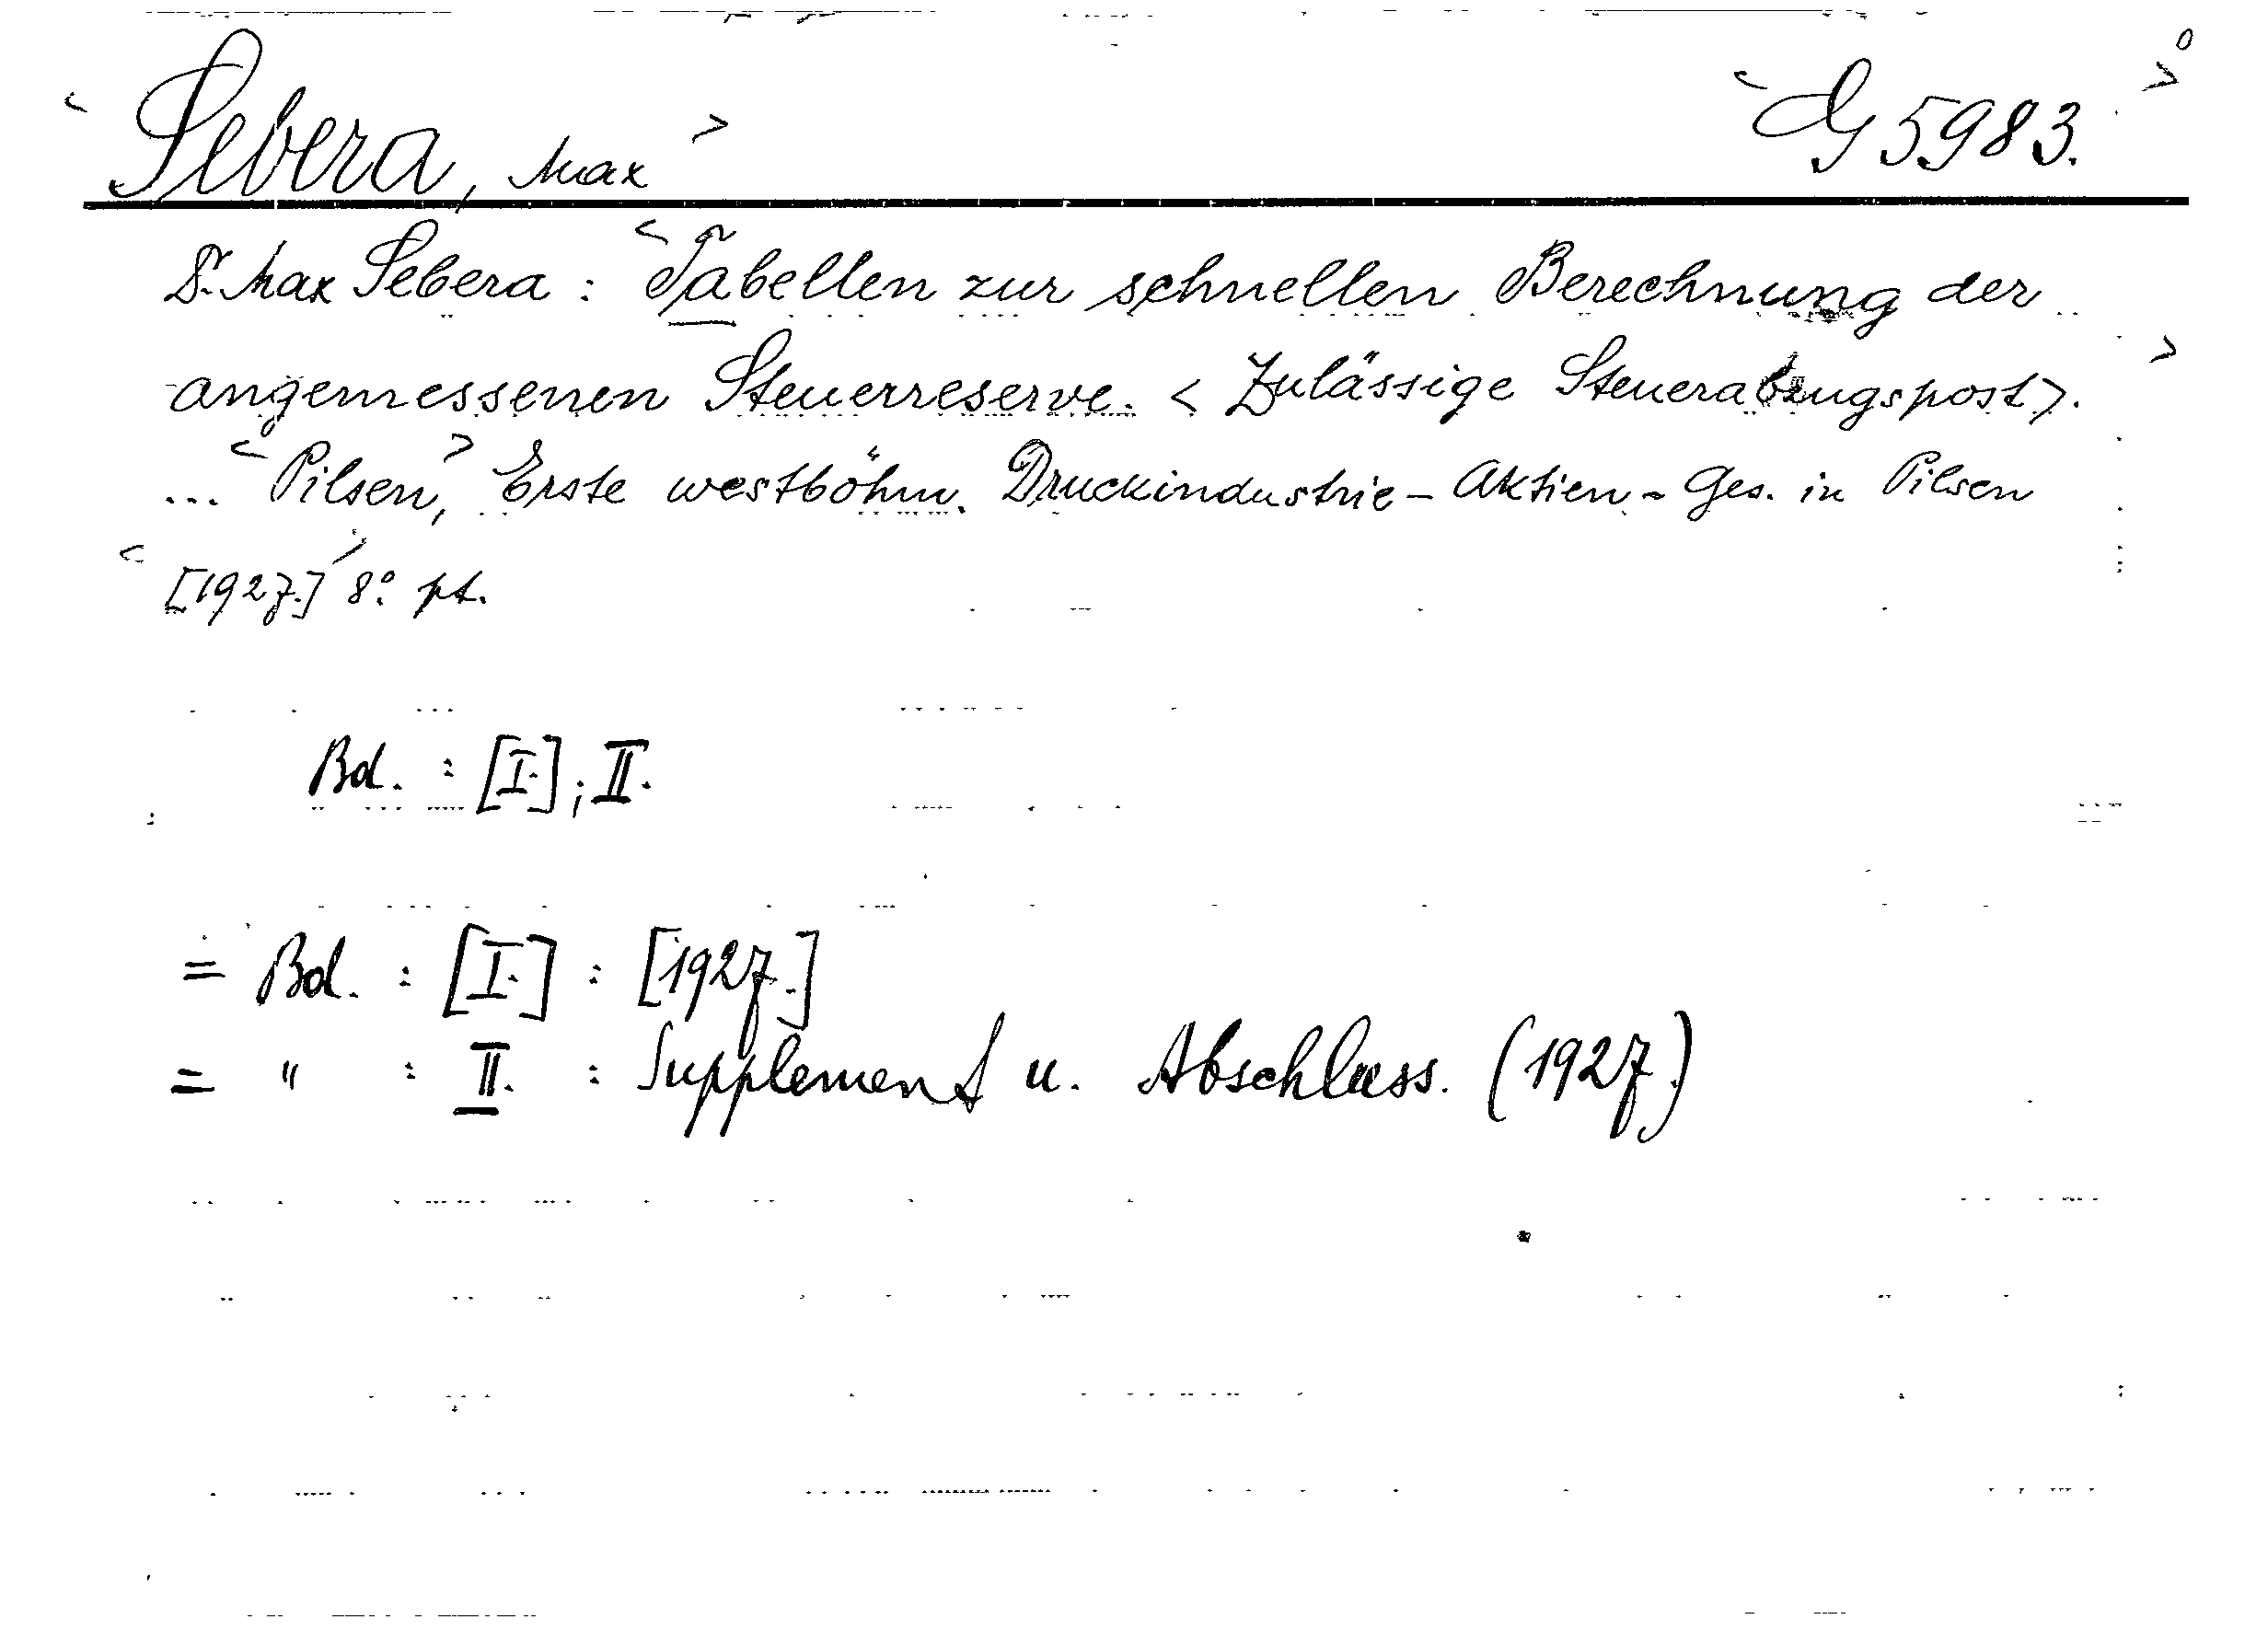 < Sebera, Max > < G 5983. >
Dr. Max Sebera : < Tabellen zur schnellen Berechnung der
angemessenen Steuerreserve. < Zulässige Steuerabzugspost >. >
... < Pilsen, > Erste westböhm. Druckindustrie - Aktien - Ges. in Pilsen
< [1927.] > 8°. pt.
Bd. : [I.] ; II.
= Bd. : [I.] : [1927.]
= " : II. : Supplement u. Abschluss. (1927.)